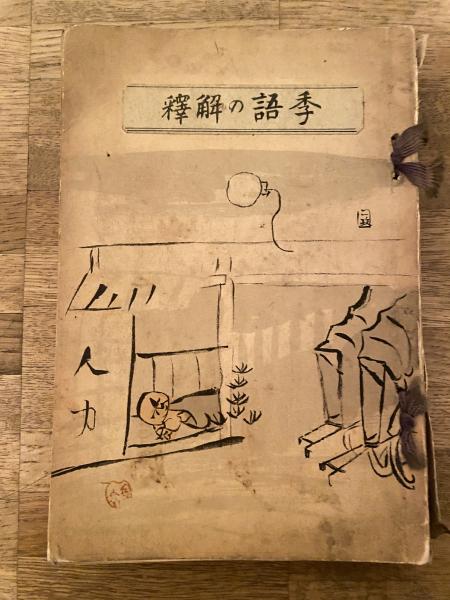 季語の解釋
人力